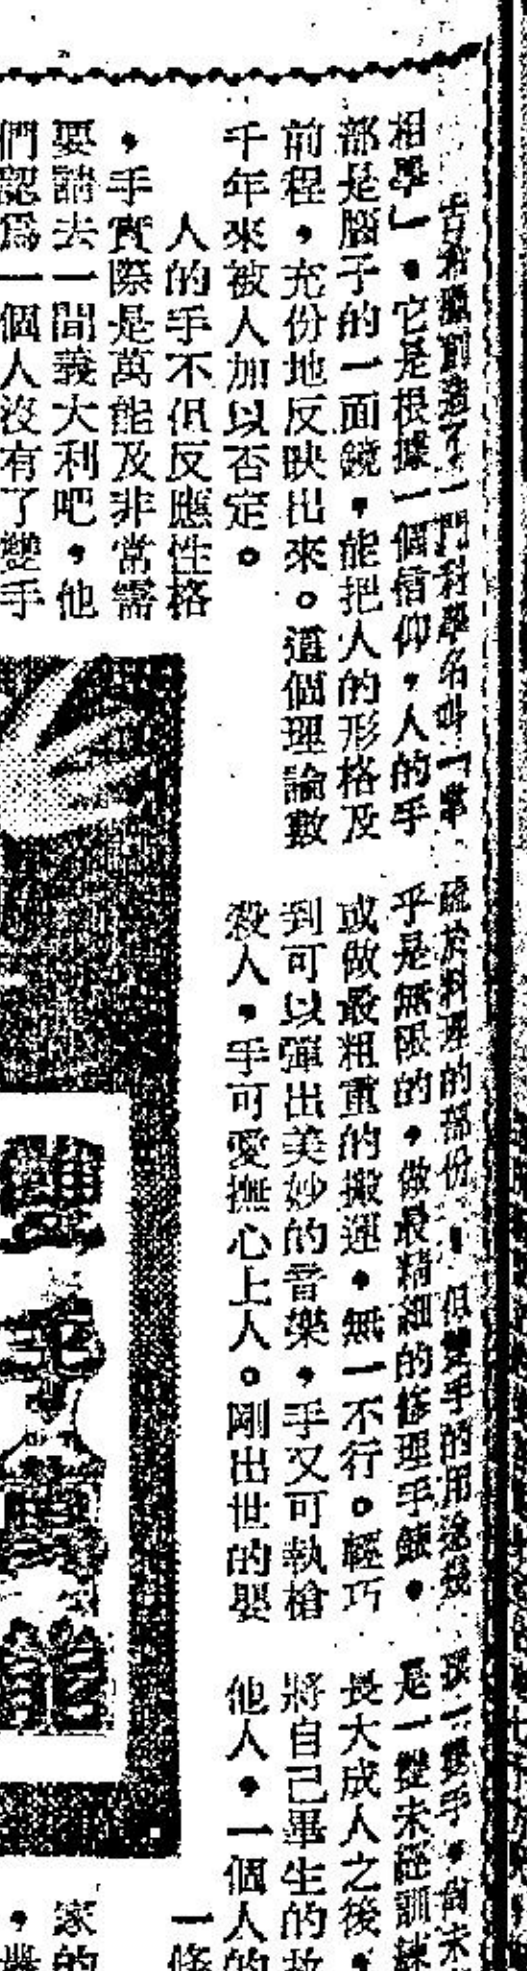 古希臘創造了一門科學名叫「掌
相學」。它是根據一個信仰,人的手
部是腦子的一面鏡,能把人的形格及
前程,充份地反映出來。這個理論數
千年來被人加以否定。
人的手不但反應性格
,手實際是萬能及非常需
要請去一間義大利吧,他
們認爲一個人沒有了雙手
疏於料理的部份,但雙手的用途幾
乎是無限的,做最精細的修理手錶,
或做最粗重的搬運,無一不行。輕巧
到可以彈出美妙的音樂,手又可執槍
殺人,手可愛撫心上人。剛出世的嬰
孩一雙手,尙未
是一雙未經訓練
長大成人之後,
將自己畢生的故
他人,一個人的
一條
家的
雙手萬能